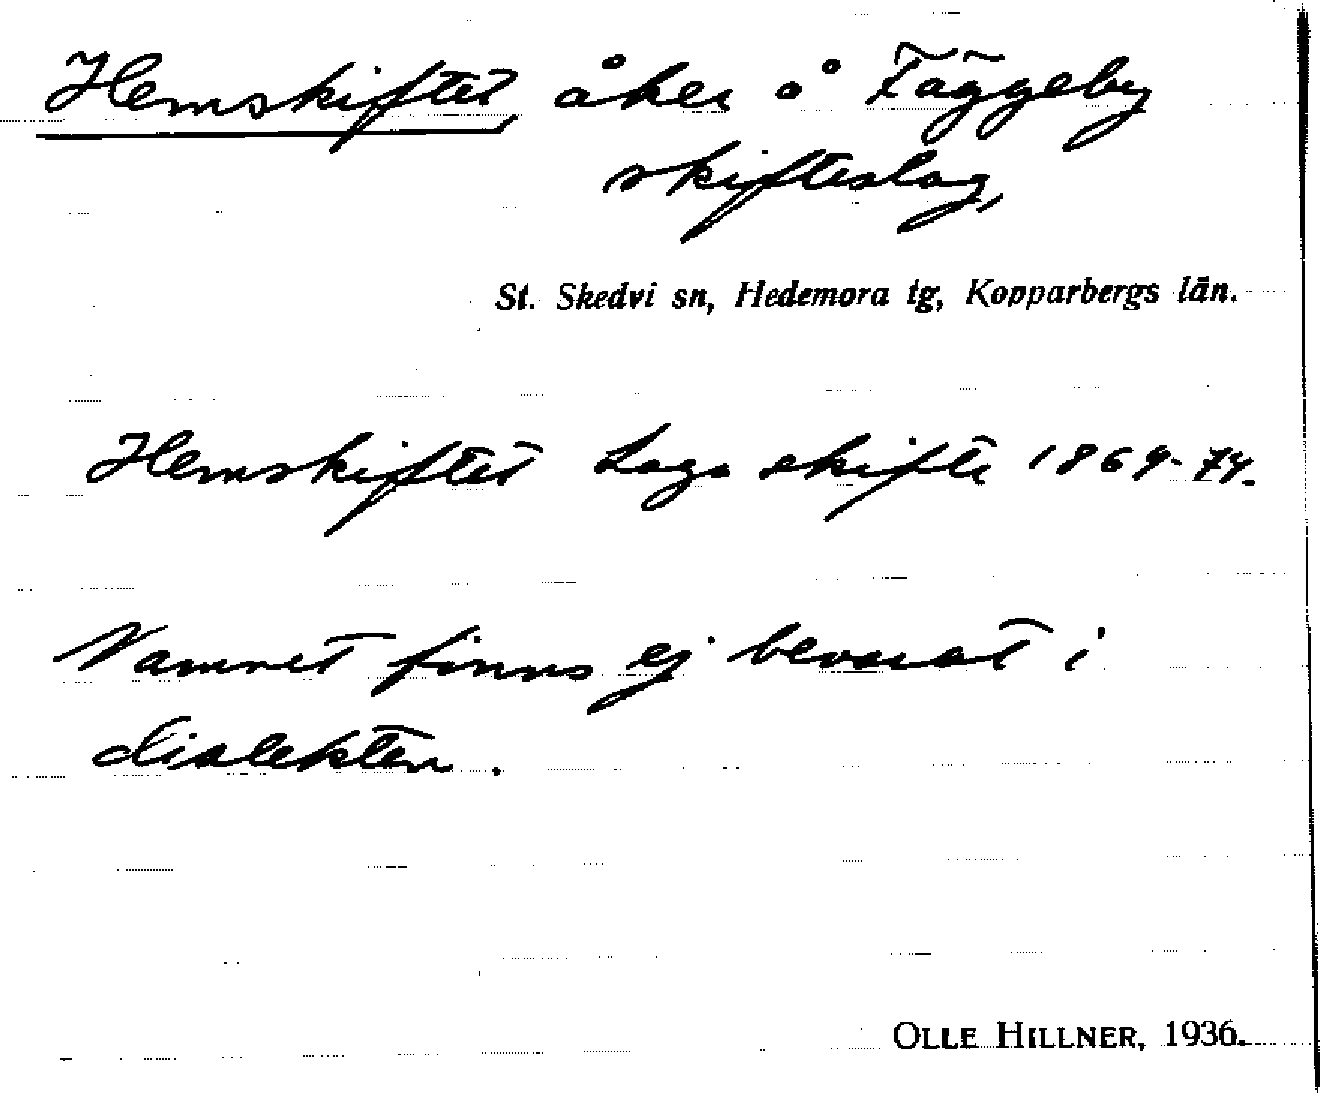 Hemskiftet, åker å Fäggeby
skifteslag,
St. Skedvi sn, Hedemora tg, Kopparbergs län.
Hemskiftet Laga skifte 1869-74.
Namnet finns ej bevarat i
dialekten.
OLLE HILLNER, 1936.